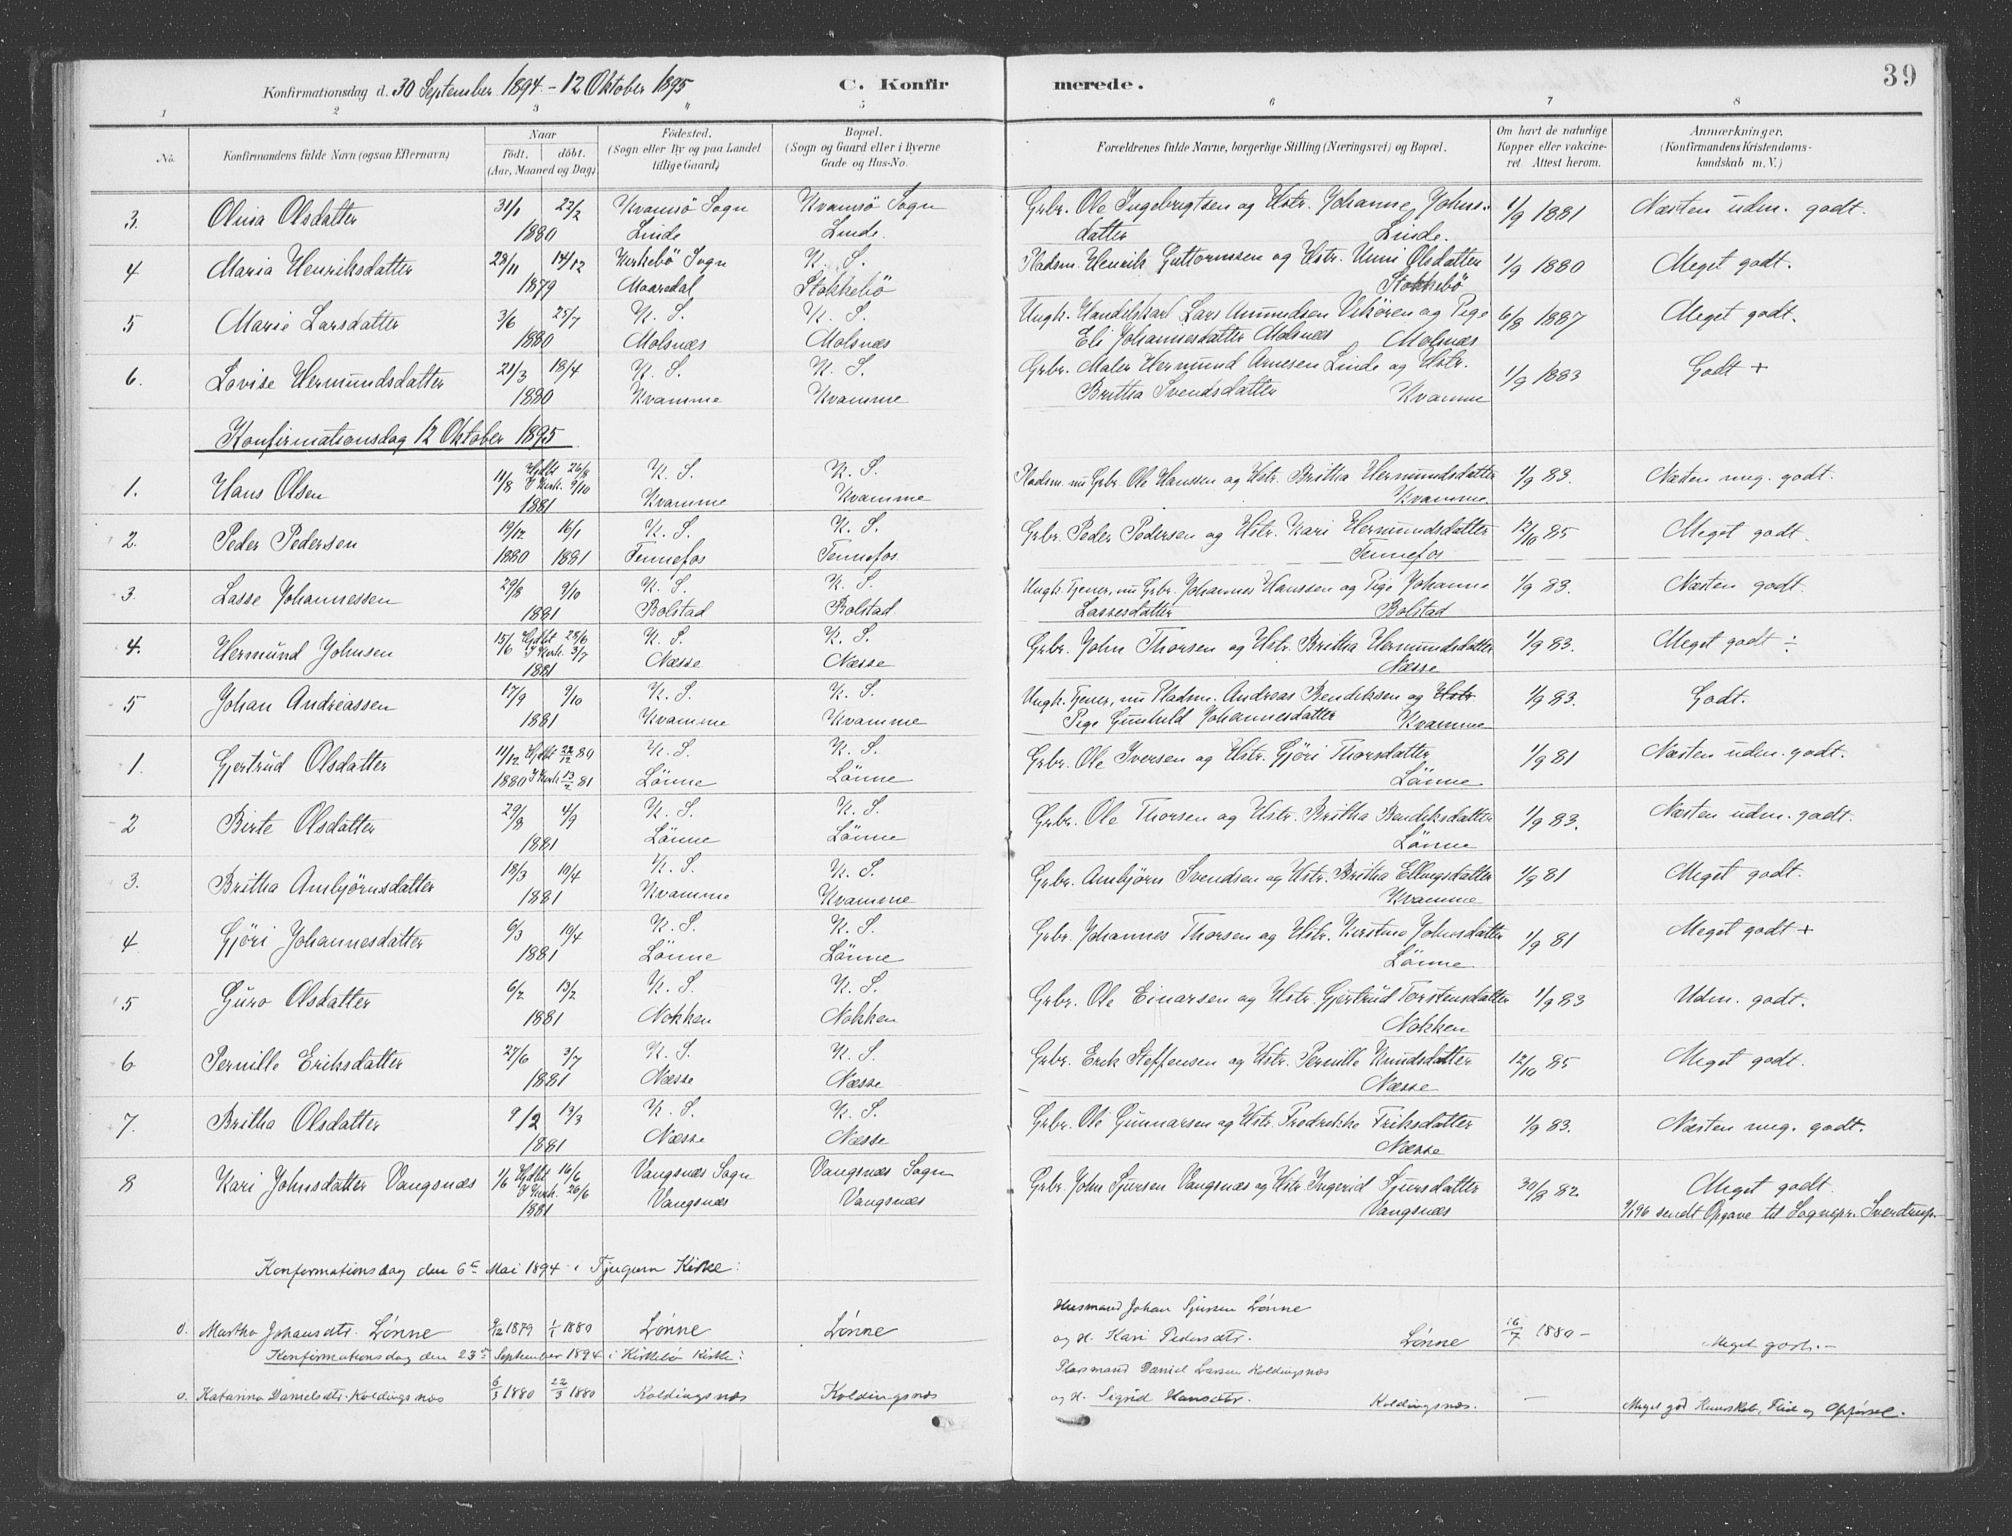 Konfirmationsdag d. 30 September 1894 - 12 Oktober 1895 C. Konfirmerede. 39
1 2 3 " 5 6 7 8
No. Konfirmandens fulde Navn (ogsaa Efternavn) Naar født. døbt. (Aar, Maaned og Dag). Födested. (Sogn eller By og paa Landet tillige Gaard) Bopæl. (Sogn og Gaard eller i Byerne Gade og Hus-No. Forældrenes fulde Navne, borgerlige Stilling (Næringsvei) og Bopæl. Om havt de naturlige Kopper eller vakcineret Attest herom. Anmærkninger. (Konfirmandens Kristendomskundskab m. V.)
3. Olina Olsdatter 31/1 22/2 Kvamsö Sogn Kvamsö Sogn Grbr. Ole Ingebrigtsen og Hstr. Johanne Johns- 1/9 1881 Næsten udm. godt.
1880 Linde Linde. datter Linde.
4 Maria Henriksdatter 23/11 14/12 Kirkebö Sogn K. S. Pladsm. Henrik Guttormsen og Hstr. Unni Olsdatter 1/9 1880 Meget godt.
1879 Maaredal Stokkebö Stokkebö
5 Marie Larsdatter 3/6 25/7 K. S. K. S. Ungk. Handelskar Lars Amundsen Vikören og Pige 6/8 1887 Meget godt.
1880 Molsnæs Molsnæs Eli Johannesdatter Molsnæs Molsnæs
6. Lovise Hermundsdatter 21/3 18/4 K. S. K. S. Grbr. Maler Hermund Arnesen Linde og Hstr. 1/9 1883 Godt +
1880 Kvamme Kvamme Brittha Svendsdatter Kvamme
Konfirmationsdag 12 Oktober 1895
1. Hans Olsen 11/8 Hjdbt 26/8 K. S. K. S. Pladsm. nu Grbr. Ole Hanssen og Hstr. Britha Hermundsdatter 1/9 83. Næsten meg. godt.
I Kirk. 9/10 1881 Kvamme Kvamme Kvamme
2. Peder Pedersen 19/12 16/1 K. S. K. S. Grbr. Peder Pedersen og Hstr. Kari Hermundsdatter 12/10 85 Meget godt.
1880 1881 Tennefos Tennefos Tennefos
3. Lasse Johannessen 29/8 9/10 K. S. K. S. Ungk. Tjener, nu Grbr. Johannes Hanssen og Pige Johanne 1/9 83. Næsten godt.
1881 Bolstad Bolstad Lassesdatter Bolstad
4. Hermund Johnsen 15/6 Hjdbt 28/6 K. S. K. S. Grbr. John Thorsen og Hstr. Britha Hermundsdatter 1/9 83. Meget godt ÷
I Kirk. 3/7 1881 Næsse Næsse Næsse
5 Johan Andreassen 17/9 9/10 K. S. K. S. Ungk. Tjener, nu Pladsm. Andreas Bendiksen og Hstr 1/9 83. Godt.
1881 Kvamme Kvamme Pige Gunhild Johannesdatter Kvamme
1. Gjertrud Olsdatter 11/12 Hjdbt 22/12 80 K. S. K. S. Grbr. Ole Iversen og Hstr. Gjöri Thorsdatter 1/9 81 Næsten udm. godt.
1880 I Kirk. 13/2 81 Lönne Lönne Lönne
2 Birte Olsdatter 29/8 4/9 K. S. K. S. Grbr. Ole Thorsen og Hstr. Britha Bendiksdatter 1/9 83. Næsten udm. godt.
1881 Lönne Lönne Lönne
3. Britha Ambjörnsdatter 18/3 10/4 K. S. K. S. Grbr. Ambjörn Svendsen og Hstr. Britha Ellingsdatter 1/9 81 Meget godt.
1881 Kvamme Kvamme Kvamme
4 Gjöri Johannesdatter 6/3 10/4 K. S. K. S. Grbr. Johannes Thorsen og Hstr. Kirstine Johnsdatter 1/9 81 Meget godt +
1881 Lönne Lönne Lönne
5 Guro Olsdatter 6/2 13/2 K. S. K. S. Grbr. Ole Einarsen og Hstr. Gjertrud Torstensdatter 1/9 83 Udm. godt.
1881 Nokken Nokken Nokken
6 Pernille Eriksdatter 27/6 3/7 K. S. K. S. Grbr. Erik Steffensen og Hstr. Pernille Knudsdatter 12/10 85 Meget godt.
1881 Næsse Næsse Næsse
7. Britha Olsdatter 9/2 13/3 K. S. K. S. Grbr. Ole Gunnarsen og Hstr. Fredrikke Eriksdatter 1/9 83. Næsten meg. godt.
1881 Næsse Næsse Næsse
8 Kari Johnsdatter Vangsnæs 1/6 Hjdbt 16/6 Vangsnæs Sogn Vangsnæs Sogn Grbr. John Sjursen Vangsnæs og Hstr. Ingerid Sjursdatter 30/8 82. Meget godt.
I Kirk. 26/6 1881 Vangsnæs Vangsnæs Vangsnæs 96 sendt Opgave til Sognepr. Sverdrup.
Konfirmationsdag den 6te Mai 1894 i Tjugum Kirke:
0. Martha Johansdtr. Lønne 9/12 1879 1/1 1880 Lønne Lønne Husmand Johan Sjursen Lønne
og H. Kari Pedersdtr. Lønne 16/7 1880 - Meget godt. -
Konfirmationsdag den 23de September 1894 i Kirkebö Kirke:
0. Katarina Danielsdtr. Koldingsnæs 6/3 1880 22/3 1880 Koldingsnæs Koldingsnæs Plasmand Daniel Larsen Koldingsnæs
og H. Sigrid Hansdtr. Koldingsnæs. - Meget god Kunnskab, Flid og Opførsel.